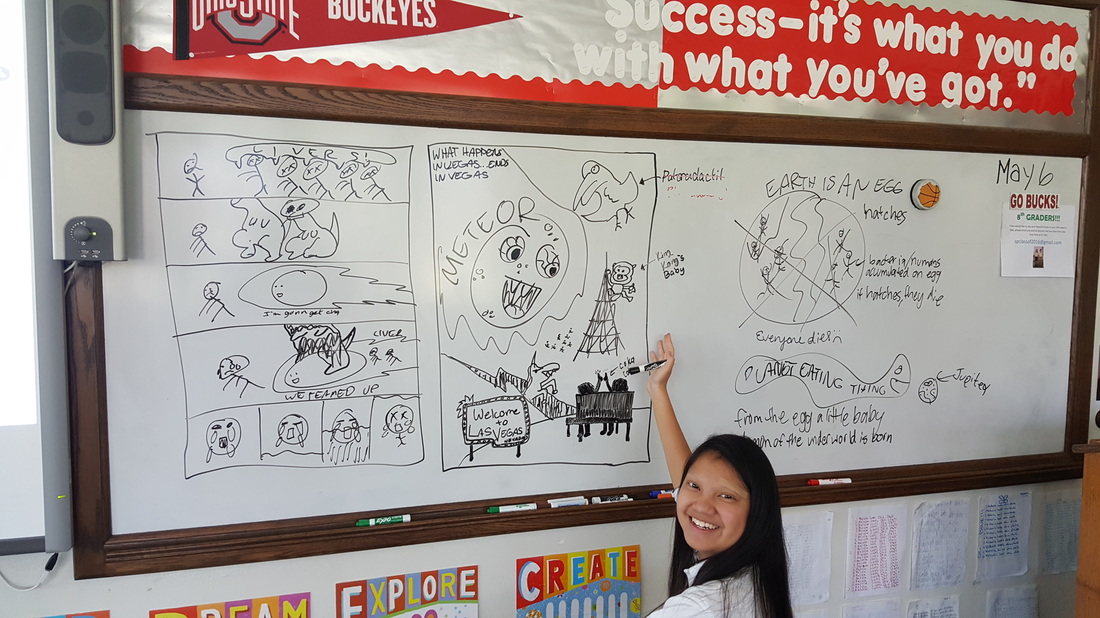 OHIO STATE
BUCKEYES
Success—it's what you do
with what you've got."
LIVERS!
I'm gonna get chu
LIVER
WE TEAMED UP
WHAT HAPPENS
IN VEGAS...ENDS
IN VEGAS
METEOR
Welcome
to
LAS VEGAS
King
Kong's
Baby
EARTH IS AN EGG
hatches
bacteria/humans
accumulated on egg
if hatches, they die
Everyone dies
PLANET EATING THING
Jupiter
from the egg a little baby
of the underworld is born
May 6
GO BUCKS!
8th GRADERS!!!
EXPO
DREAM
EXPLORE
CREATE